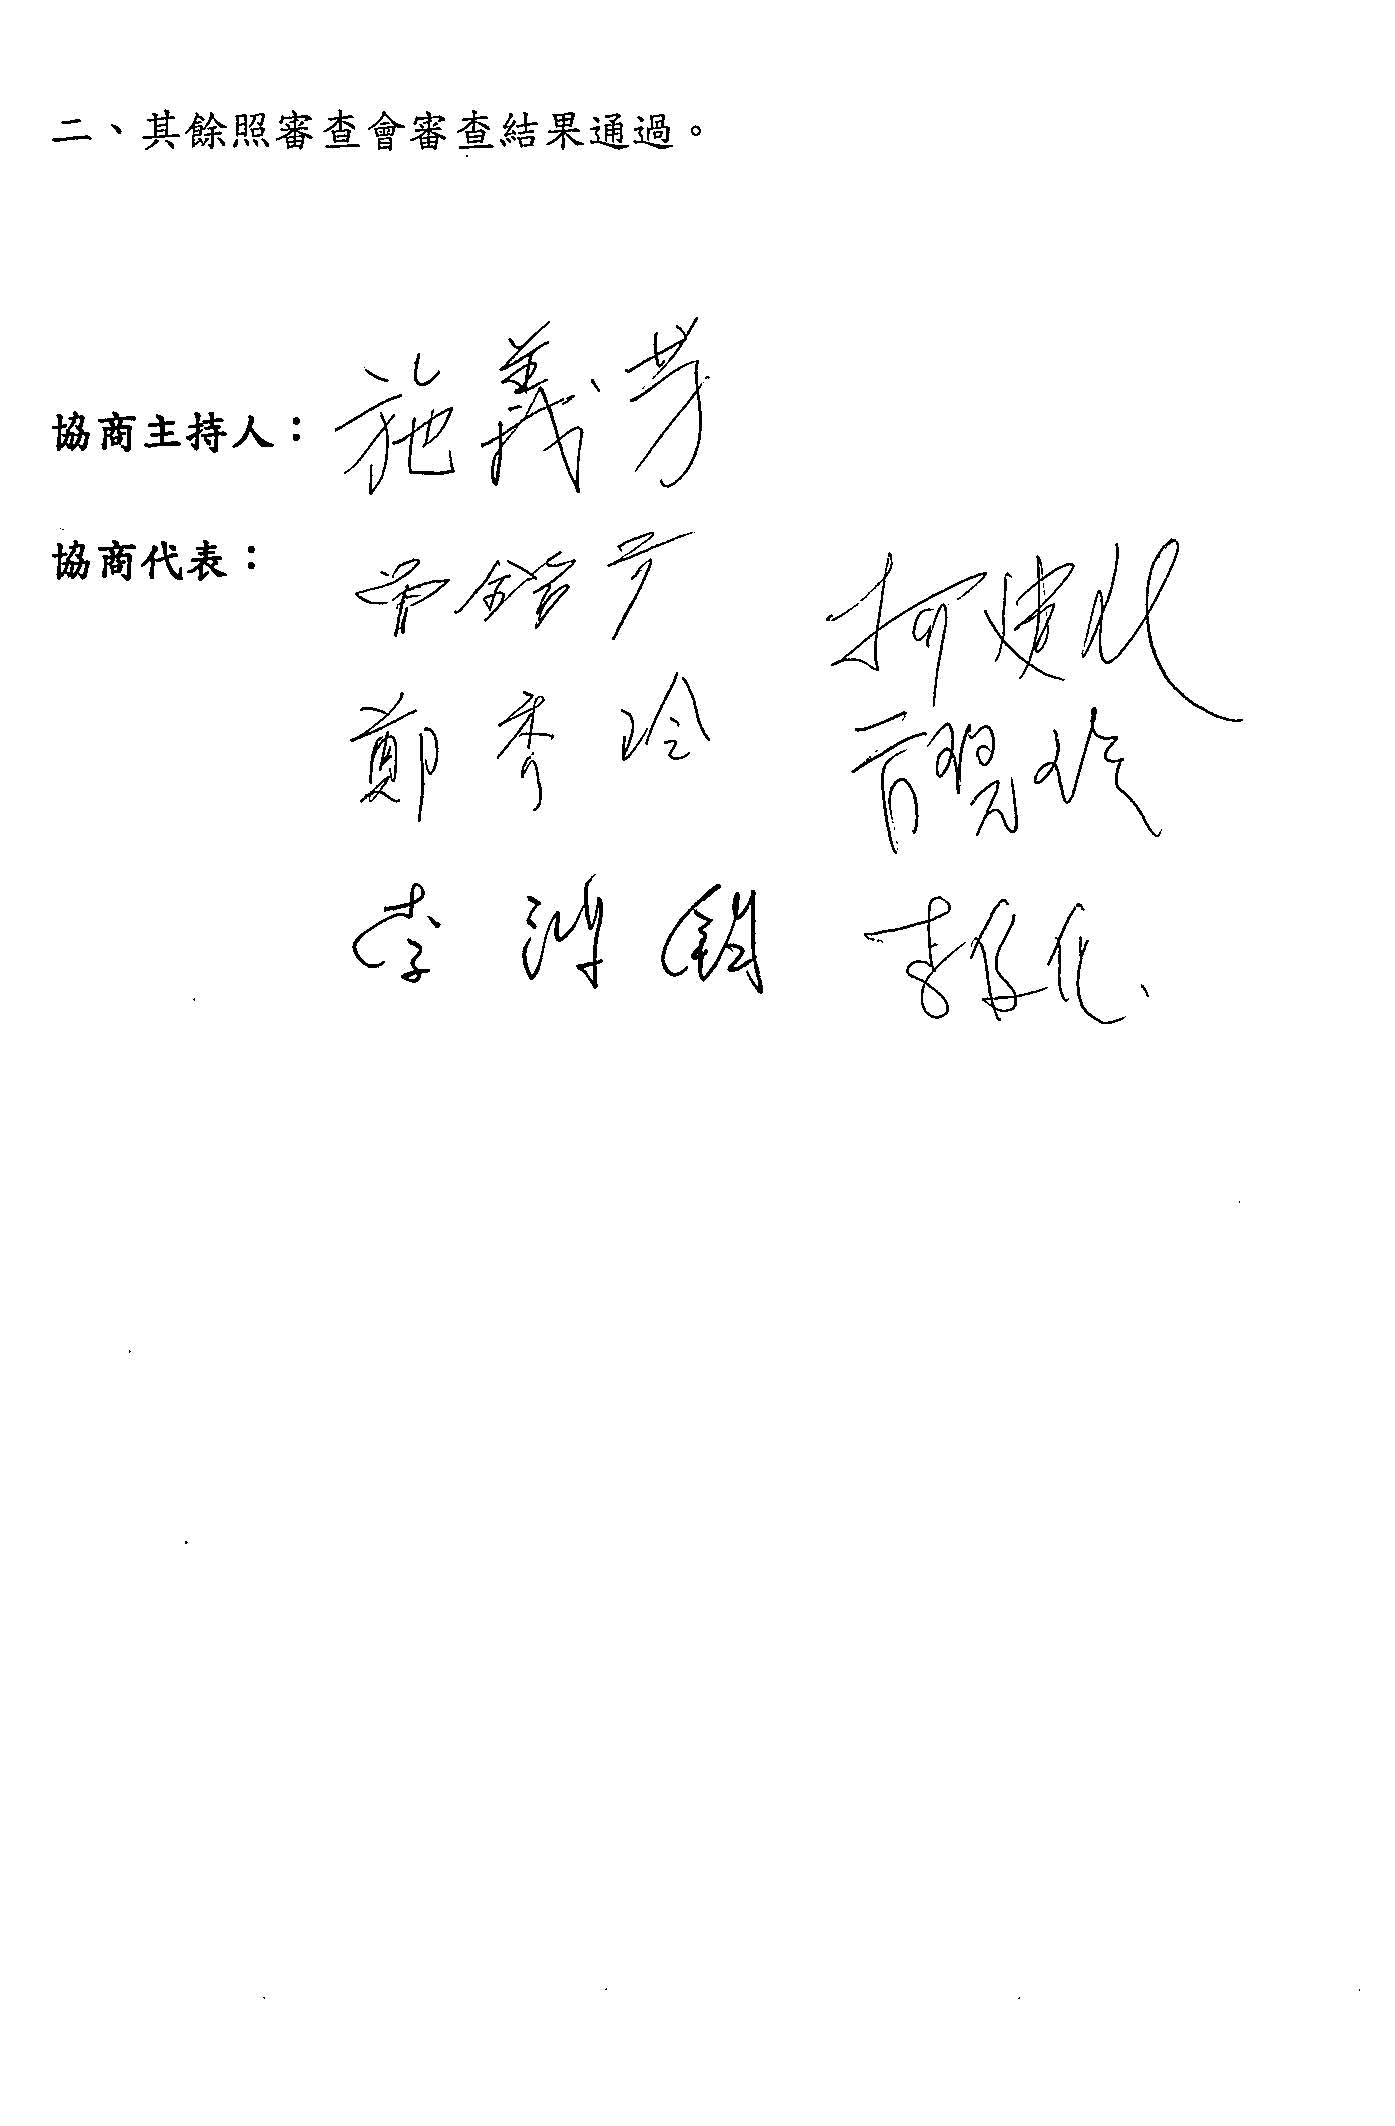 二、其餘照審查會審查結果通過。
協商主持人：施義芳
協商代表：曾銘宗 柯建銘
鄭秀玲 管碧玲
李鴻鈞 李俊俋